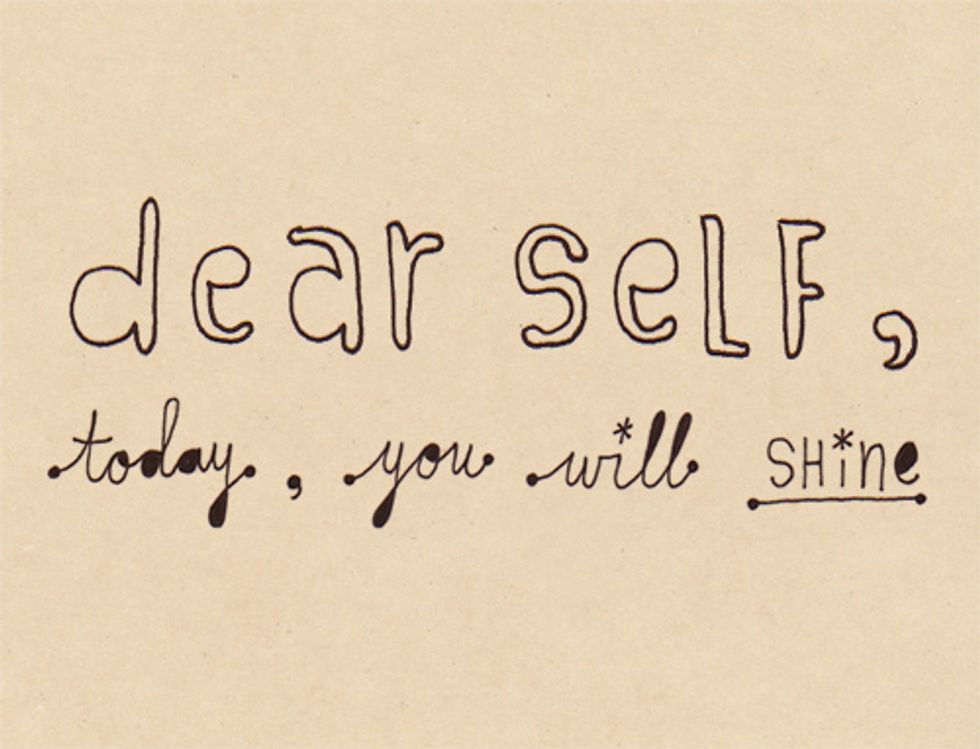 dear seLF,
today, you will SHine